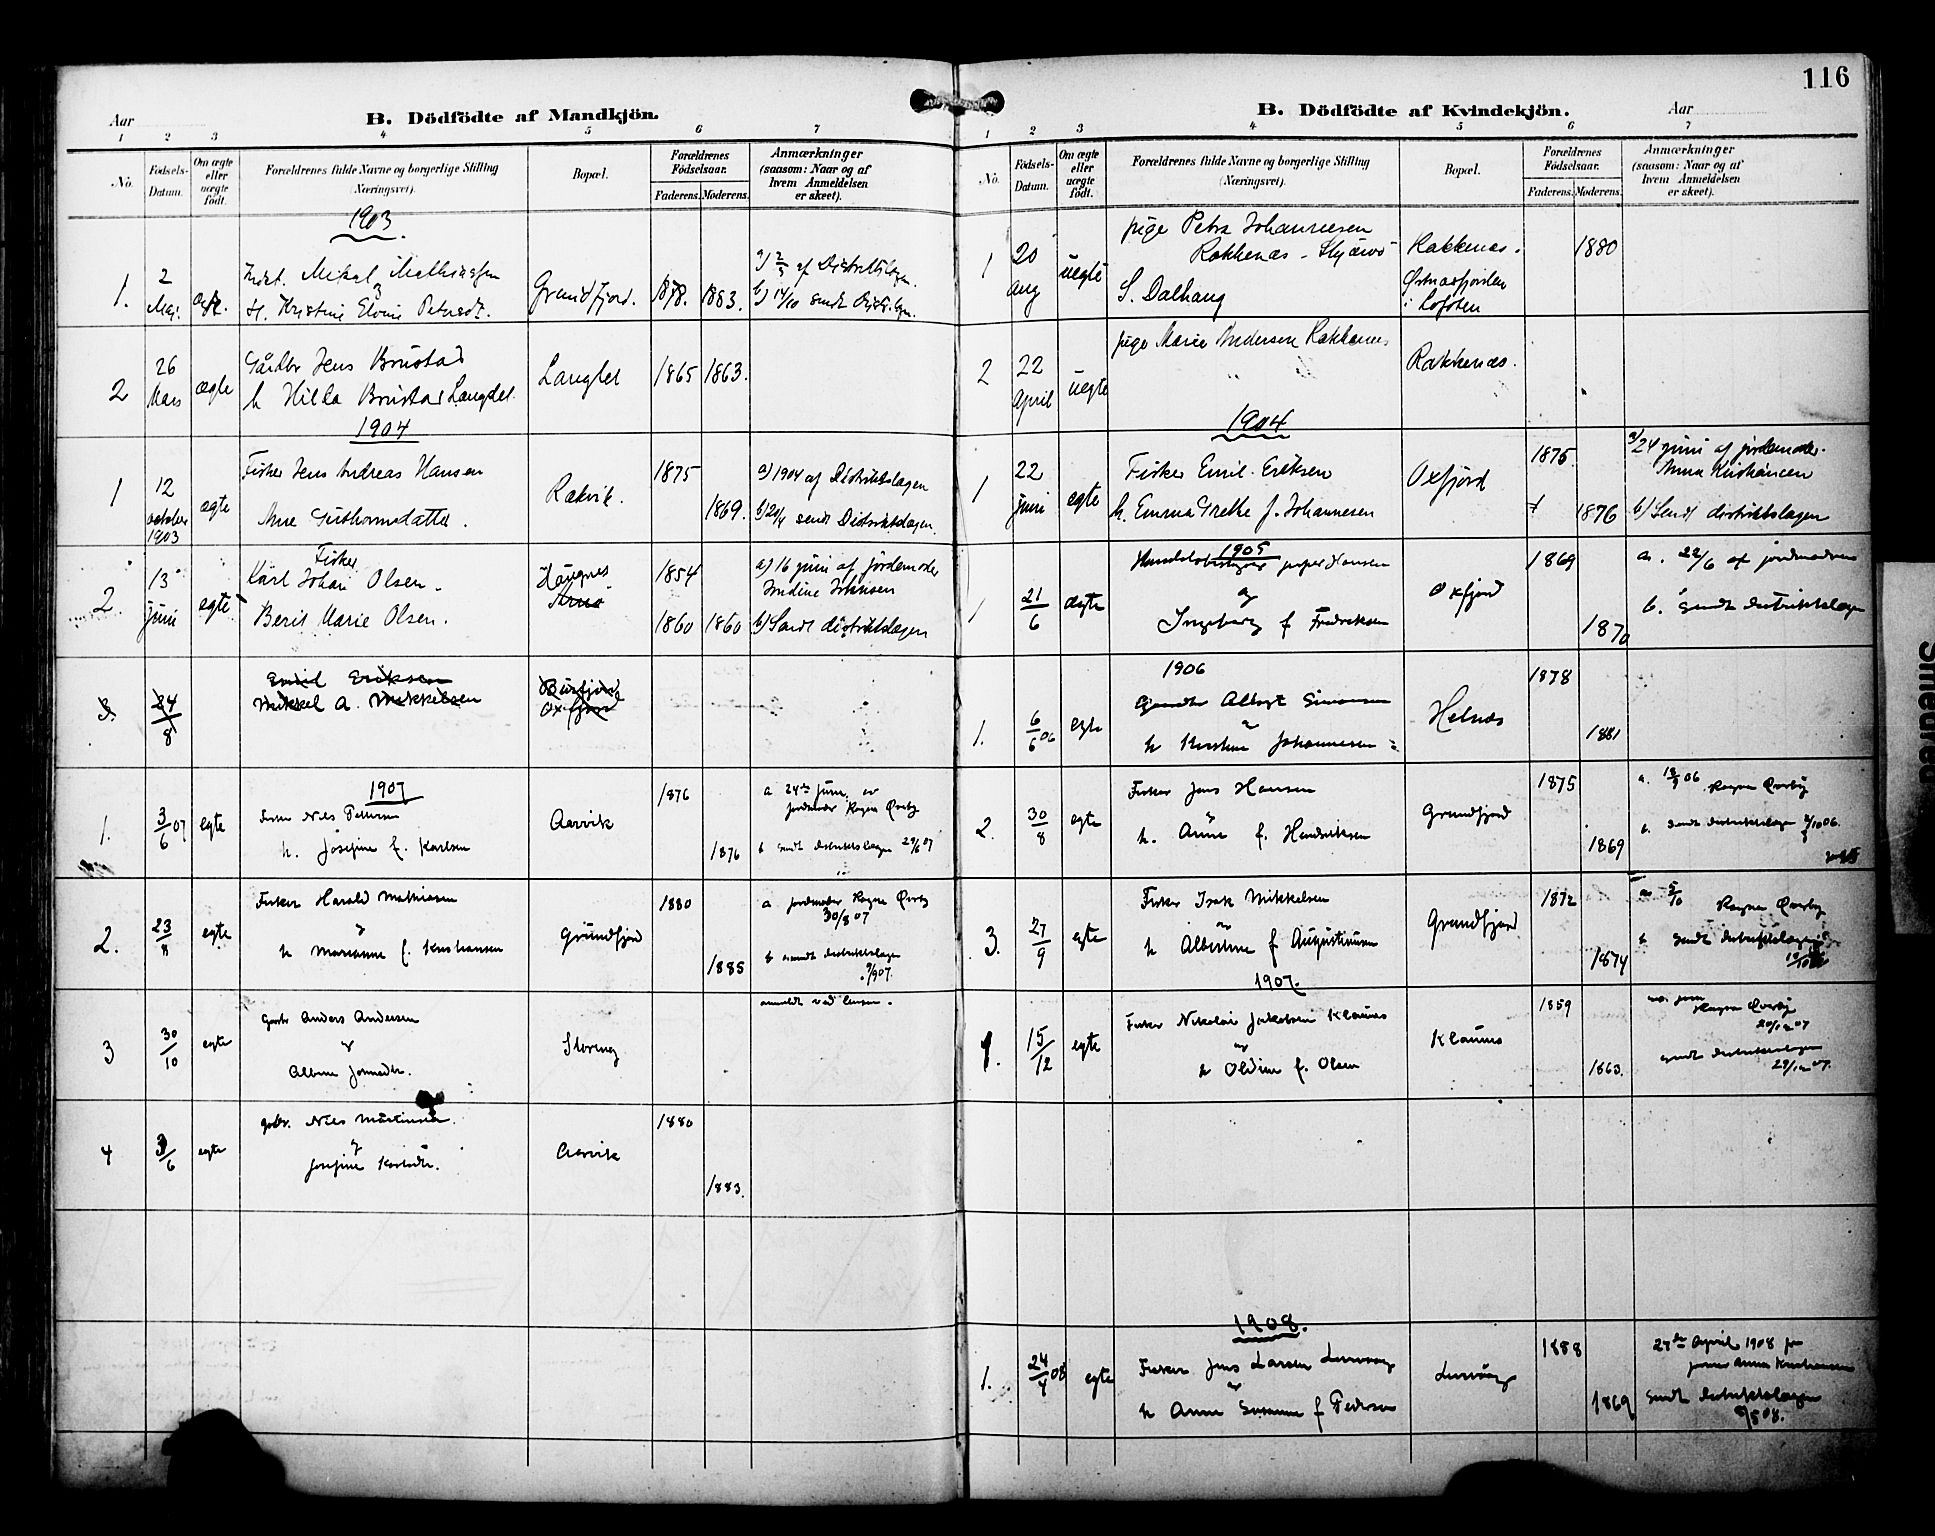 116
Aar
B. Dödfödte af Mandkjön.
1 2 3 4 5 6 7
No.
Födsels-
Datum.
Om ægte
eller
uægte
födt.
Forældrenes fulde Navne og borgerlige Stilling
(Næringsvei).
Bopæl.
Forældrenes
Födselsaar.
Faderens. Moderens.
Anmærkninger
(saasom: Naar og af
hvem Anmeldelsen
er skeet).
1903
1. 2 Mai. ægte.
Mikal
og
H. Kristine Petersdt.
Grundfjord. 1878. 1883.
a) 2/5 af Distriktslægen.
b) 14/10 sendt
2 26 Mars ægte
Gårdbr Jens Brustad
h Hilda Brustad Langslet
Langslet 1865 1863.
1904
1 12 october 1903 ægte
Fisker Jens Andreas Hansen
Ane Guthormsdatter.
Rakvik. 1875 1869.
a) 1904 af Distriktslægen
b) 20/4 sendt Distriktslægen.
2. 13 juni egte
Fisker
Karl Johan Olsen.
Berit Marie Olsen.
Haugnes
Arnö
1854
1860 1860
a) 16 juni af jordemoder
Indine Johansen
b) Sendt distriktslægen
3. 24/8
Emil Eriksen
Mikkel A. Mikkelsen
Burfjord
Oxfjord
1907
1. 3/6 07 egte
Fisker Nils Pettersen
h. Josefine f. Karlsen
Aarvik 1876 1876
a 24de Juni av
jordmoder Ragna Qverby
b sendt distriktslægen 29/6 07
2. 23/8 egte
Fisker Harald Mathiasen
og
h Marianne f. Kristiansen
Grundfjord 1880 1885
a jordmoder Ragna Qverby
30/8 07
b sendt distriktslægen
9/9 07.
3 30/10 egte
Gaardbr Anders Andersen
og
Albine
Storeng
anmeldt ved
4 3/6 egte
gaardbr. Nils Martinsen
og
Josefine Karlsdtr.
Aarvik 1880 1883.
B. Dödfödte af Kvindekjön.
Aar
1 2 3 4 5 6 7
No.
Födsels-
Datum.
Om ægte
eller
uægte
födt.
Forældrenes fulde Navne og borgerlige Stilling
(Næringsvei).
Bopæl.
Forældrenes
Födselsaar.
Faderens. Moderens.
Anmærkninger
(saasom: Naar og af
hvem Anmeldelsen
er skeet).
1 20 aug uegte
pige Petra Johannesen
Rakkenæs - Skjærvö
S. Dalhaug
Rakkenæs.
Østnæsfjorden
i Lofoten
1880
2 22 April uegte
pige Marie Andersen Rakkenes
Rakkenæs.
1904
1 22 juni egte
Fisker Emil Eriksen
h. Emma Grethe f. Johannesen
Oxfjord 1876. 1876
a) 24 juni af jordemoder
Anna Kristiansen
b) Sendt distriktslægen
1905
1 21/6 ægte
Handelsbestyrer Hansen
og
Ingeborg f Fredriksen
Oxfjord 1869 1870
a. 22/6 af jordmoderen
b. Sendt distriktslægen
1906
1. 6/6 06 egte
Gaardbr Albert Simonsen
og
h Kristine Johannesen
Helnæs 1878 1881
2. 30/8 egte
Fisker Jens Hansen
og
h. Anne f. Hendriksen
Grundfjord 1875 1869
a. 18/9 06 Ragna Qverby
b. sendt distriktslægen 2/10 06.
3. 27/9 egte
Fisker Isak Mikkelsen
og
h Albertine f Augustinussen
Grundfjord 1872 1874
a 5/10 Ragna Qverby
b sendt distriktslægen
1907.
1. 15/12 egte
Fisker Nikolai Jakobsen Klaunes
og
h Oldine f. Olsen
Klaunes 1859 1863.
Ragna Qverby
20/12 07
sendt distriktslægen
29/12 07.
1908.
1. 24/4 08 egte
Fisker Jens Larsen
og
h Anne Susanne f Pedersen
1888 1869
27de April 1908
Anna Kristiansen
sendt distriktslægen
9/5 08.
Smedred